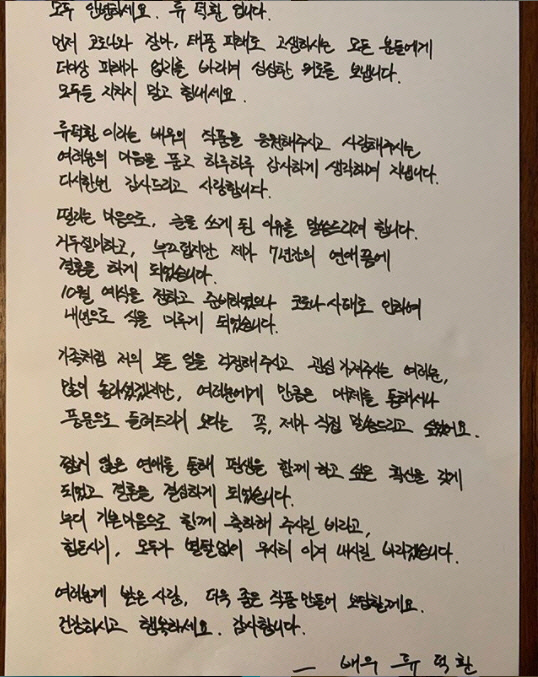 모두 안녕하세요. 류 덕환 입니다.
먼저 코로나와 장마, 태풍 피해로 고생하시는 모든 분들에게
더이상 피해가 없기를 바라며 심심한 위로를 보냅니다.
모두들 지치지 말고 힘내세요.
류덕환 이라는 배우의 작품을 응원해주시고 사랑해주시는
여러분의 마음을 품고 하루하루 감사하게 생각하며 지냅니다.
다시한번 감사드리고 사랑합니다.
떨리는 마음으로, 글을 쓰게 된 이유를 말씀드리려 합니다.
거두절미하고, 부끄럽지만 제가 7년간의 연애끝에
결혼을 하게 되었습니다.
10월 예식을 정하고 준비하였으나 코로나 사태로 인하여
내년으로 식을 미루게 되었습니다.
가족처럼 저의 모든 일을 걱정해주시고 관심 가져주시는 여러분,
많이 놀라셨겠지만, 여러분에게 만큼은 매체를 통해서나
풍문으로 들려드리기 보다는 꼭, 제가 직접 말씀드리고 싶었어요.
짧지 않은 연애를 통해 평생을 함께 하고 싶은 확신을 갖게
되었고 결혼을 결심하게 되었습니다.
부디 기쁜마음으로 함께 축하해 주시길 바라고,
힘든시기, 모두가 별탈없이 무사히 이겨 내시길 바라겠습니다.
여러분께 받은 사랑, 더욱 좋은 작품 만들어 보답할게요.
건강하시고 행복하세요. 감사합니다.
— 배우 류 덕환